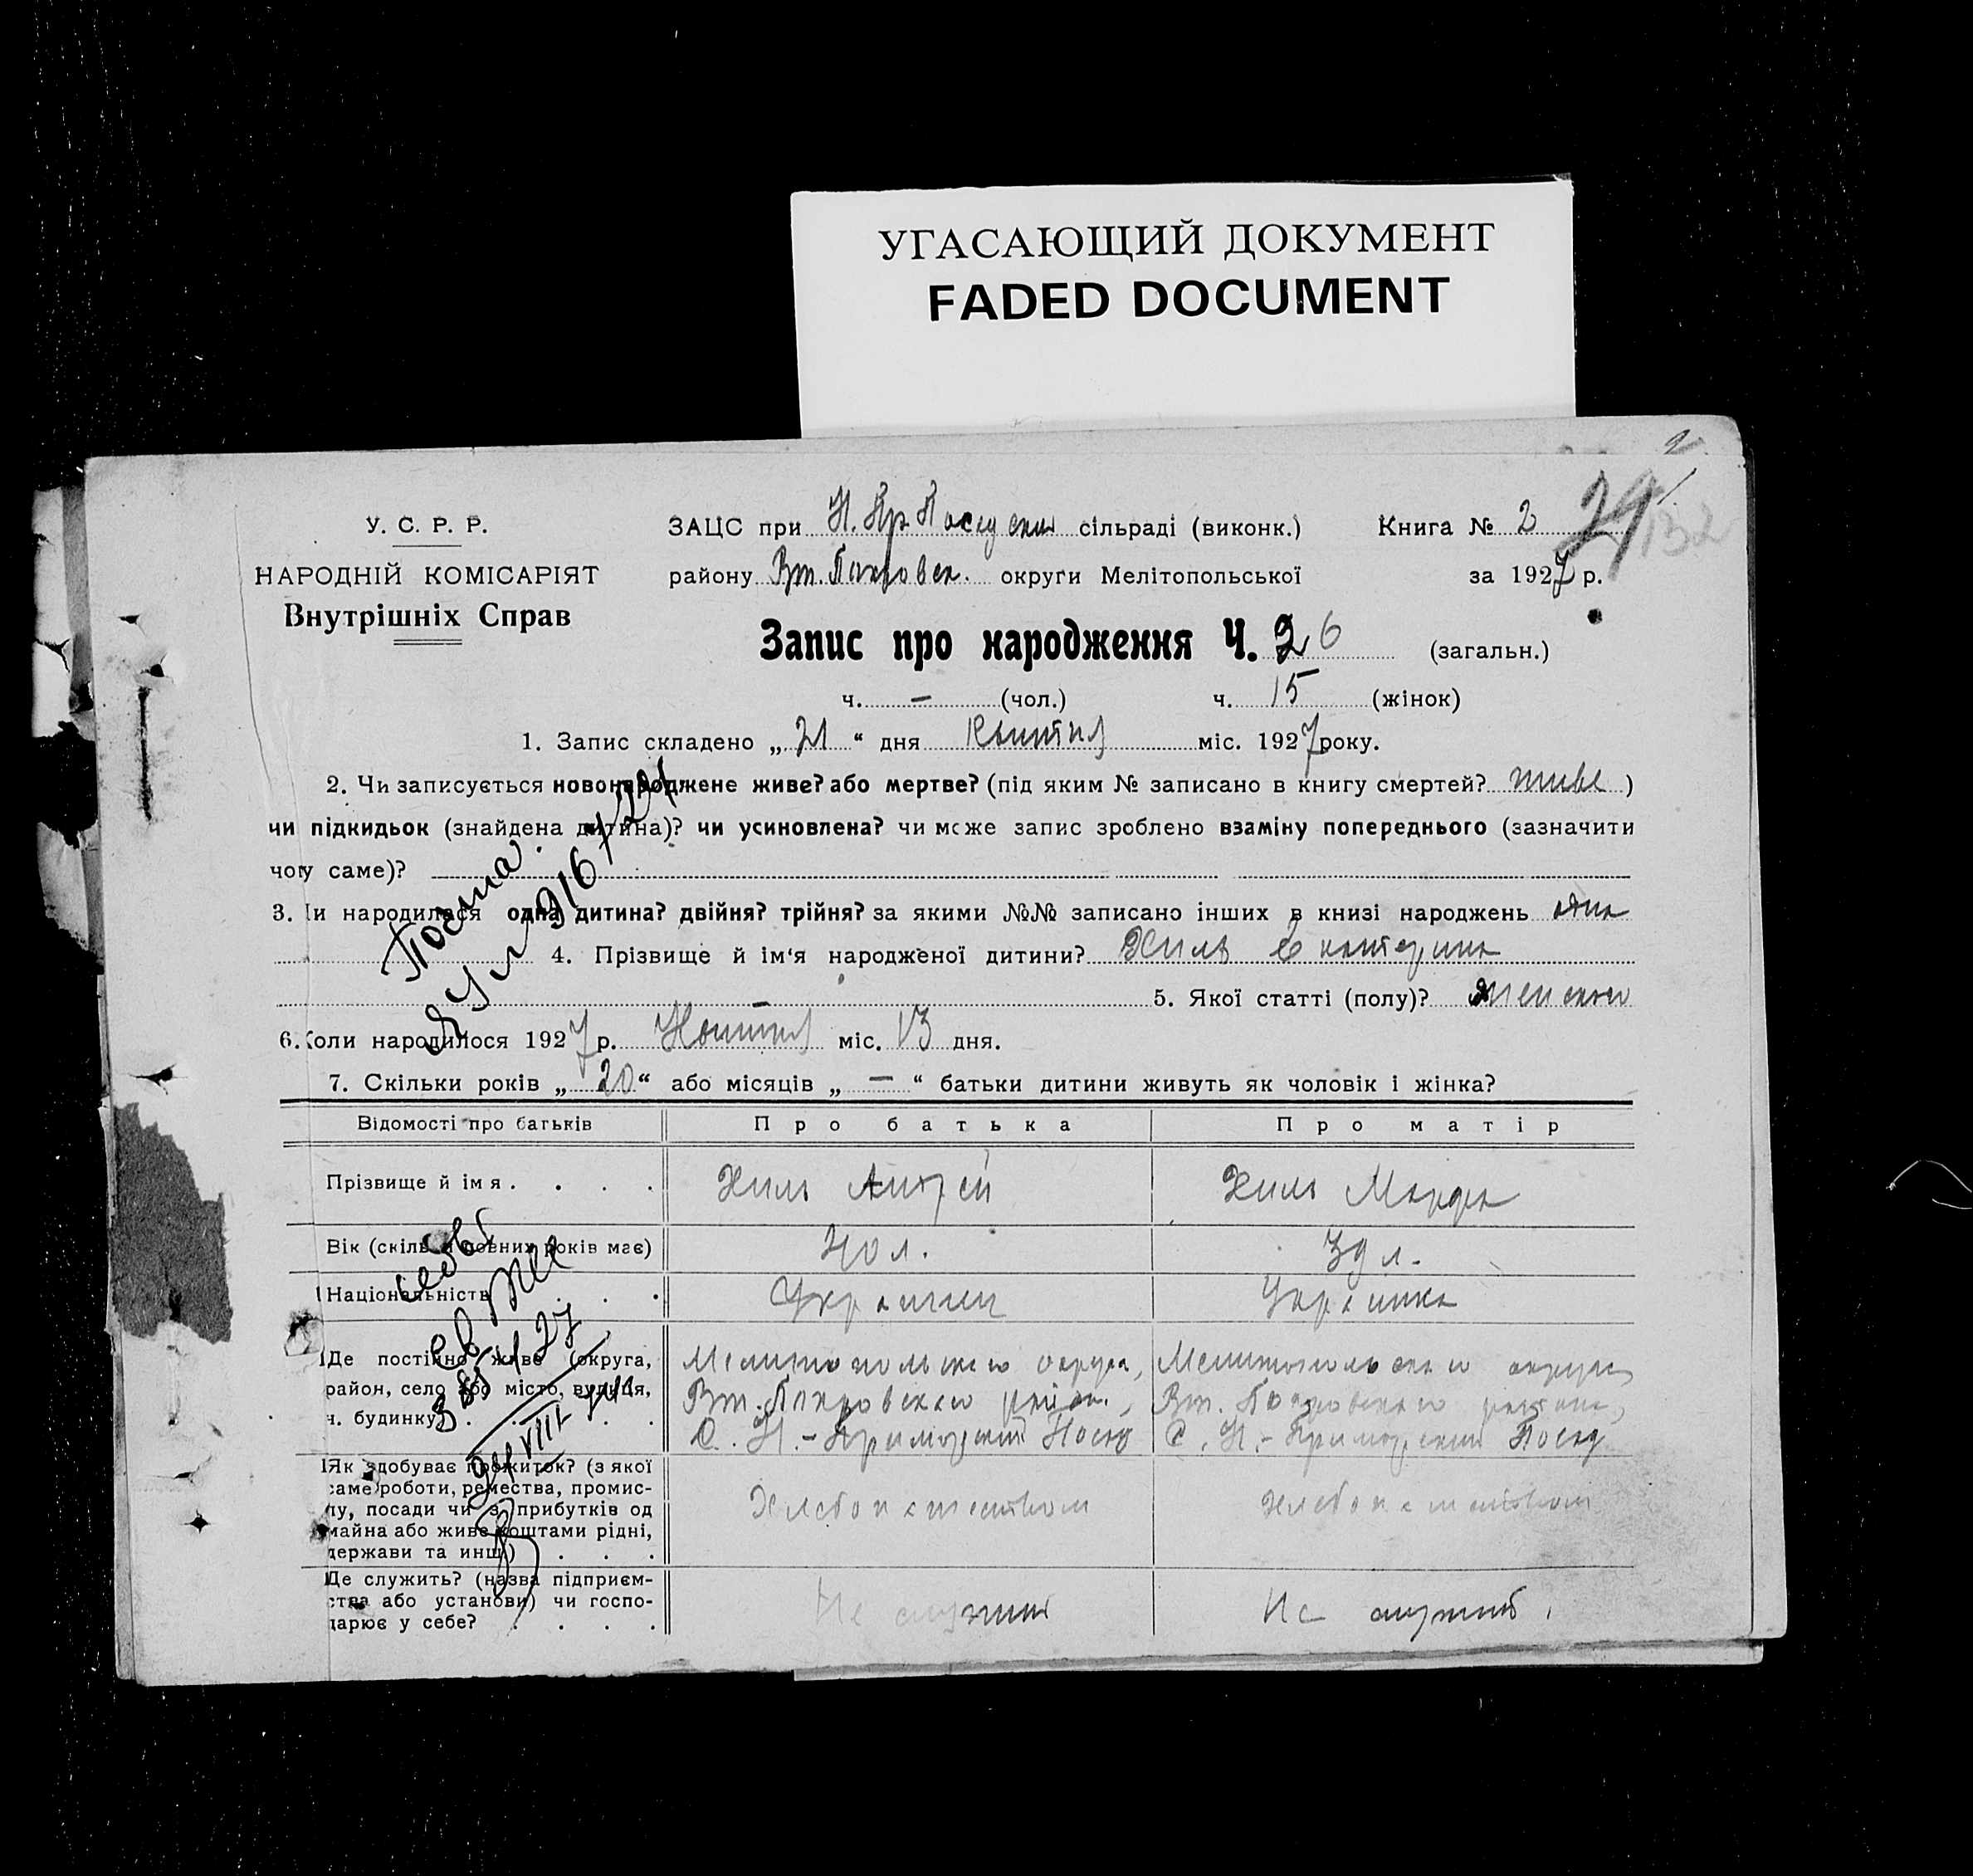 УГАСАЮЩИЙ ДОКУМЕНТ
FADED DOCUMENT
29
132
У. С. Р. Р.
НАРОДНІЙ КОМІСАРІЯТ
Внутрішніх Справ
ЗАЦС при Н. Пр. Посадском сільраді (виконк.) Книга № 2
району Вт. Покровск. округи Мелітопольської за 1927 р.
Запис про народження Ч. 26 (загальн.)
ч. — (чол.) ч. 15 (жінок)
1. Запис складено „ 21 “ дня міс. 1927 року.
2. Чи записується новонароджене живе? або мертве? (під яким № записано в книгу смертей? живе )
чи підкидьок (знайдена дитина)? чи усиновлена? чи може запис зроблено взаміну попереднього (зазначити
чогу саме)?
3. Чи народилася одна дитина? двійня? трійня? за якими №№ записано інших в книзі народжень одна
4. Прізвище й ім‘я народженої дитини? Хиль Екатерина
5. Якої статті (полу)? женское
6. Коли народилося 1927 р. міс. 13 дня.
7. Скільки років „ 20 “ або місяців „ — “ батьки дитини живуть як чоловік і жінка?
Відомості про батьків Про батька Про матір
Прізвище й імя . . . . Хиль Андрей Хиль Марфа
Вік (скільки повних років має) 40 л. 39 л.
Національність . . . Украинец Украинка
Де постійно живе (округа, Мелитопольского округа, Мелитопольского округа,
район, село або місто, вулиця, Вт. Покровского район., Вт. Покровского района,
ч. будинку) . . . . С. Н.-Приморский Посад С. Н.-Приморский Посад
Як здобуває прожиток? (з якої
саме роботи, ремества, промис-
лу, посади чи з прибутків од Хлебопашеством Хлебопашеством
майна або живе коштами рідні,
держави та инш.) . . .
Де служить? (назва підприєм-
ства або установи) чи госпо- Не служит Не служит.
дарює у себе? . . . .